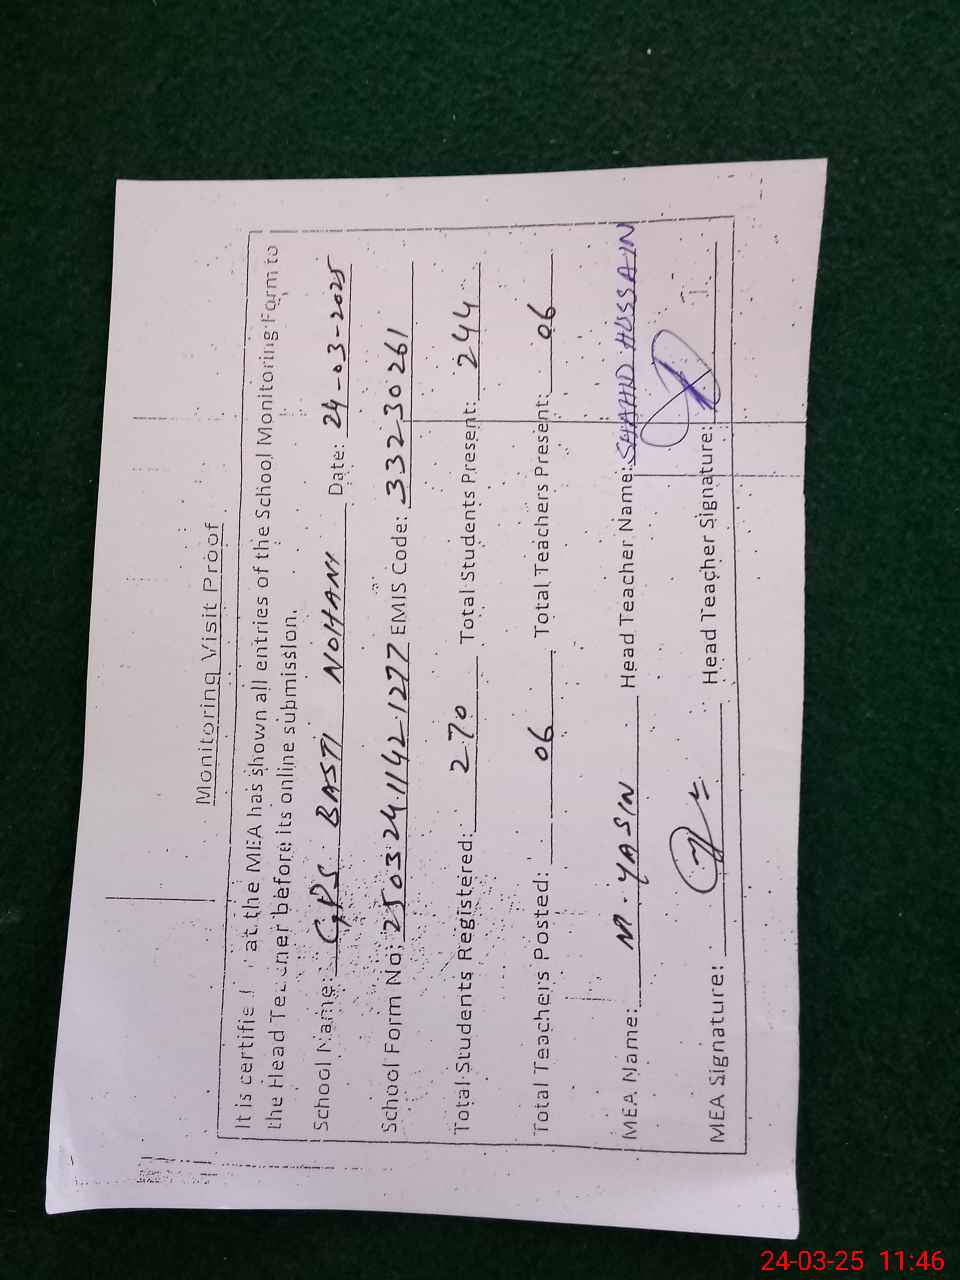 Monitoring Visit Proof
It is certifie at the MEA has shown all entries of the School Monitoring Form to
the Head Teacher before its online submission.
School Name: GPS BASTI NOHANI Date: 24-03-2025
School Form No: 250324114212 77 EMIS Code: 33230261
Total Students Registered: 270 Total Students Present: 244
Total Teachers Posted: 06 Total Teachers Present: 06
MEA Name: M. YASIN Head Teacher Name: SHAHID HUSSAIN
MEA Signature: Head Teacher Signature:
24-03-25 11:46